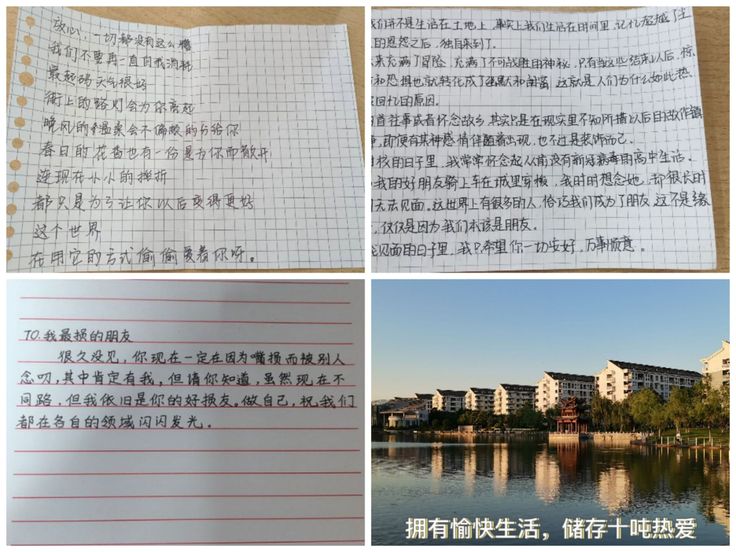 放心,一切都没有这么糟
我们不要再一直自我消耗
最起码天气很好
街上的路灯会为你亮起
晚风的温柔会不偏颇的分给你
春日的花香也有一份是为你而散开
连现在小小的挫折
都只是为了让你以后变得更好
这个世界
在用它的方式偷偷爱着你呀。
我们并不是生活在土地上,事实上我们生活在时间里,记忆超越了尘
的恩怨之后,独自来到了。
未来充满了冒险,充满了不可战胜的神秘,只有当这些结束以后,惊
和恐惧也就转化成了幽默和甜蜜,这就是人们为什么如此热
回忆的原因。
首往事或者怀念故乡,其实只是在现实里不知所措以后的故作镇
,即使有某种感情伴随着出现,也不过是装饰而已。
核的日子里,我常常怀念起从前没有新冠病毒的高中生活。
我的好朋友骑上车在城里穿梭,我时时想念她,却很长时
无法见面。这世界上有很多的人,恰巧我们成为了朋友,这不是缘
,仅仅是因为我们本该是朋友。
见面的日子里,我只希望你一切安好,万事顺意。
TO.我最损的朋友
很久没见,你现在一定在因为嘴损而被别人
念叨,其中肯定有我,但请你知道,虽然现在不
同路,但我依旧是你的好损友。做自己,祝我们
都在各自的领域闪闪发光。
拥有愉快生活,储存十吨热爱